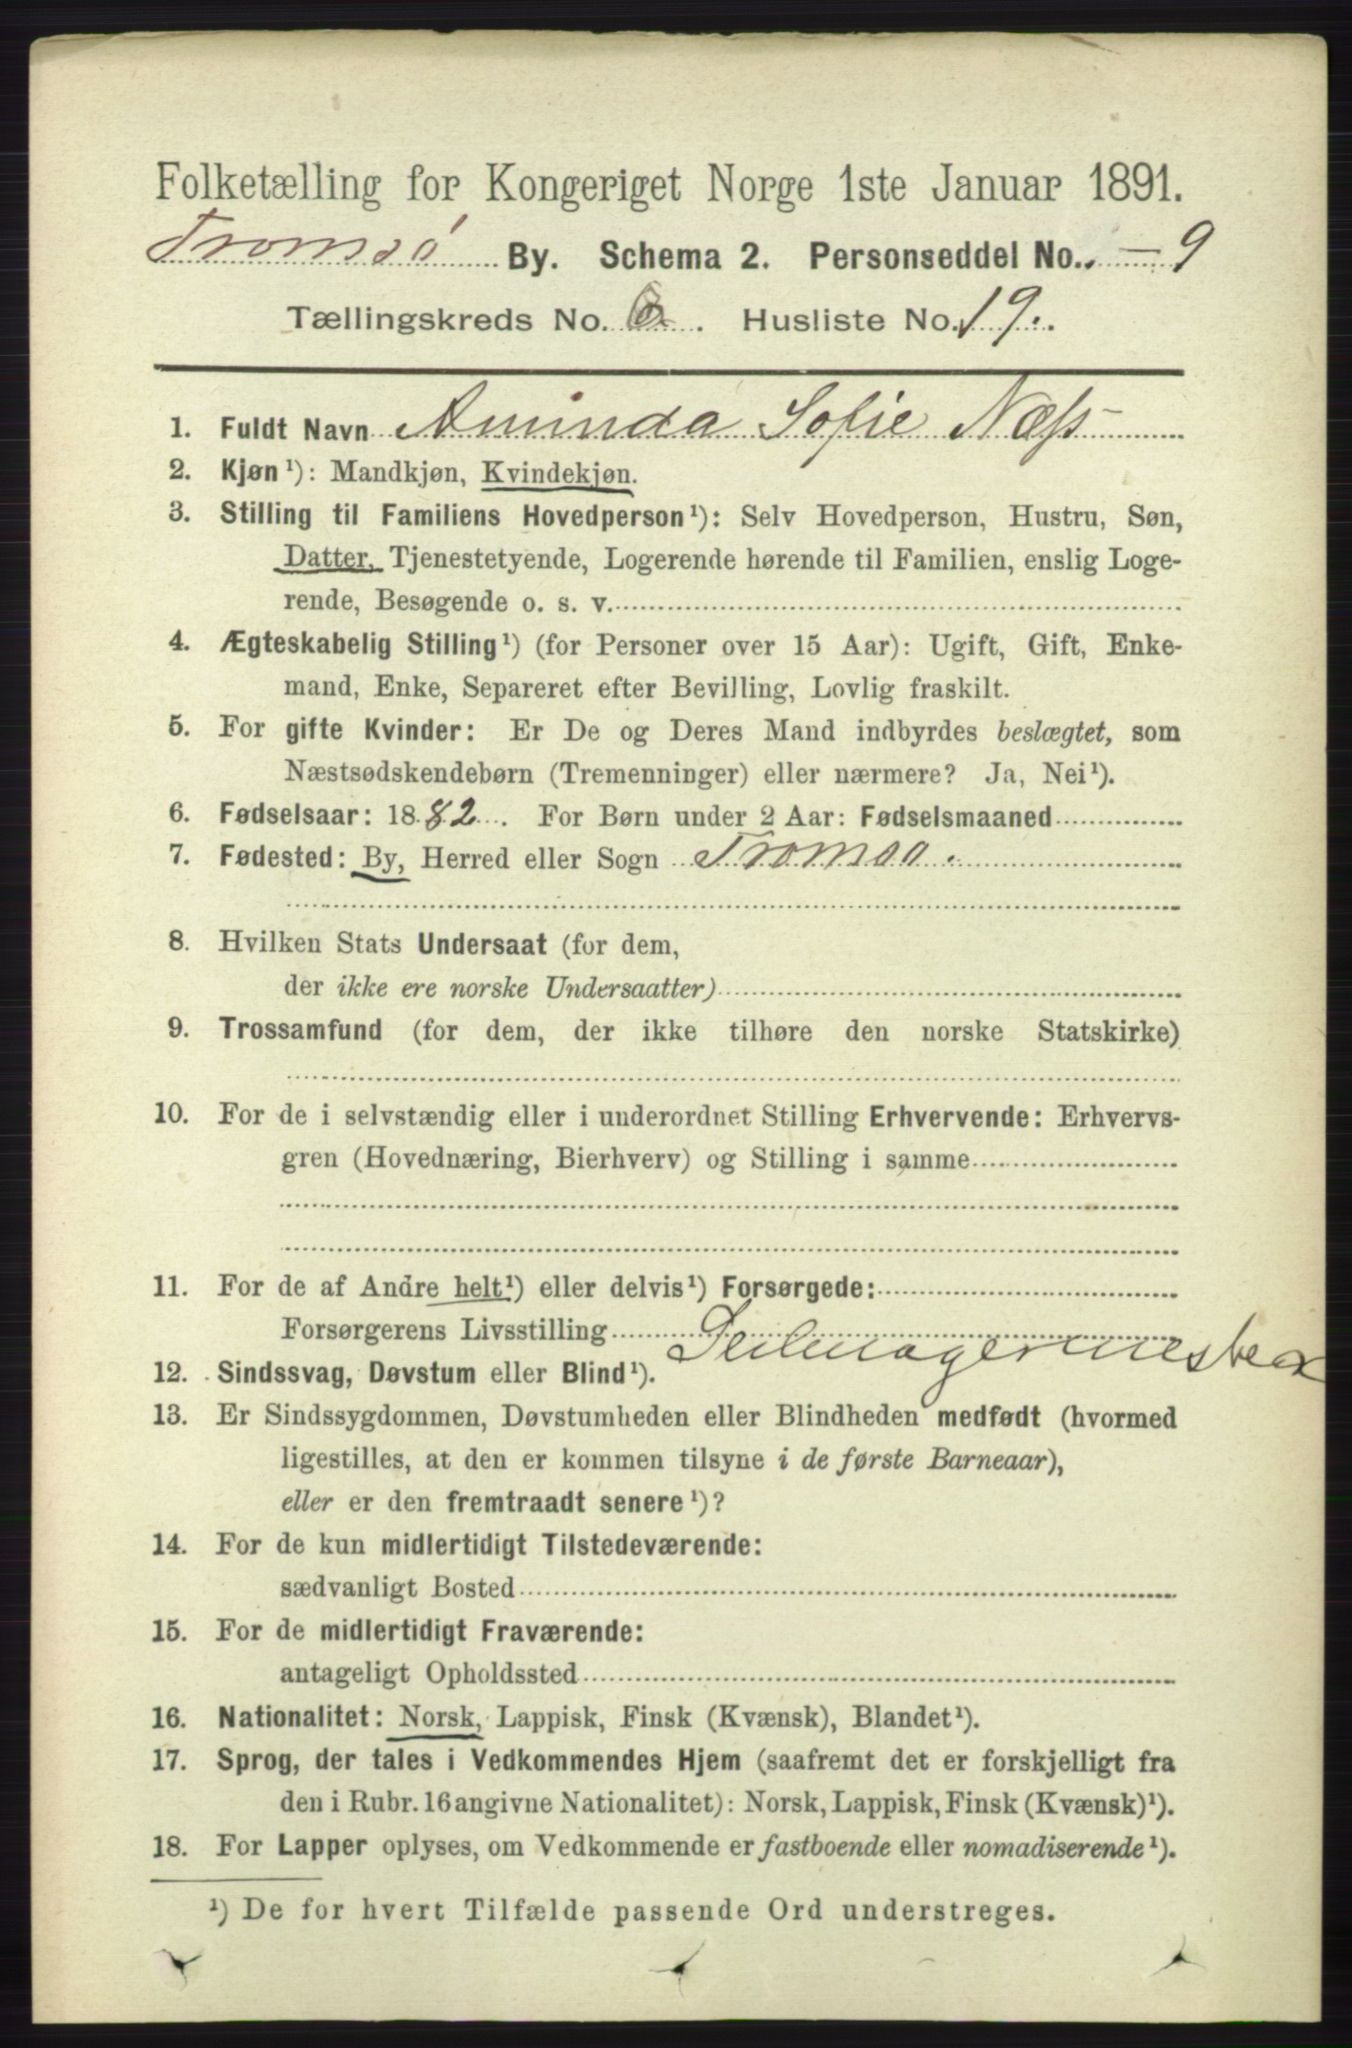 Folketælling for Kongeriget Norge 1ste Januar 1891.
Tromsø By. Schema 2. Personseddel No. — 9
Tællingskreds No. 6. Husliste No. 19.
1. Fuldt Navn Aminda Sofie Næss
2. Kjøn¹): Mandkjøn, Kvindekjøn.
3. Stilling til Familiens Hovedperson¹): Selv Hovedperson, Hustru, Søn,
Datter, Tjenestetyende, Logerende hørende til Familien, enslig Loge-
rende, Besøgende o. s. v.
4. Ægteskabelig Stilling¹) (for Personer over 15 Aar): Ugift, Gift, Enke-
mand, Enke, Separeret efter Bevilling, Lovlig fraskilt.
5. For gifte Kvinder: Er De og Deres Mand indbyrdes beslægtet, som
Næstsødskendebørn (Tremenninger) eller nærmere? Ja, Nei¹).
6. Fødselsaar: 1882. For Børn under 2 Aar: Fødselsmaaned
7. Fødested: By, Herred eller Sogn Tromsø.
8. Hvilken Stats Undersaat (for dem,
der ikke ere norske Undersaatter)
9. Trossamfund (for dem, der ikke tilhøre den norske Statskirke)
10. For de i selvstændig eller i underordnet Stilling Erhvervende: Erhvervs-
gren (Hovednæring, Bierhverv) og Stilling i samme
11. For de af Andre helt¹) eller delvis¹) Forsørgede:
Forsørgerens Livsstilling
12. Sindssvag, Døvstum eller Blind¹).
13. Er Sindssygdommen, Døvstumheden eller Blindheden medfødt (hvormed
ligestilles, at den er kommen tilsyne i de første Barneaar),
eller er den fremtraadt senere¹)?
14. For de kun midlertidigt Tilstedeværende:
sædvanligt Bosted
15. For de midlertidigt Fraværende:
antageligt Opholdssted
16. Nationalitet: Norsk, Lappisk, Finsk (Kvænsk), Blandet¹).
17. Sprog, der tales i Vedkommendes Hjem (saafremt det er forskjelligt fra
den i Rubr. 16 angivne Nationalitet): Norsk, Lappisk, Finsk (Kvænsk)¹).
18. For Lapper oplyses, om Vedkommende er fastboende eller nomadiserende¹).
¹) De for hvert Tilfælde passende Ord understreges.